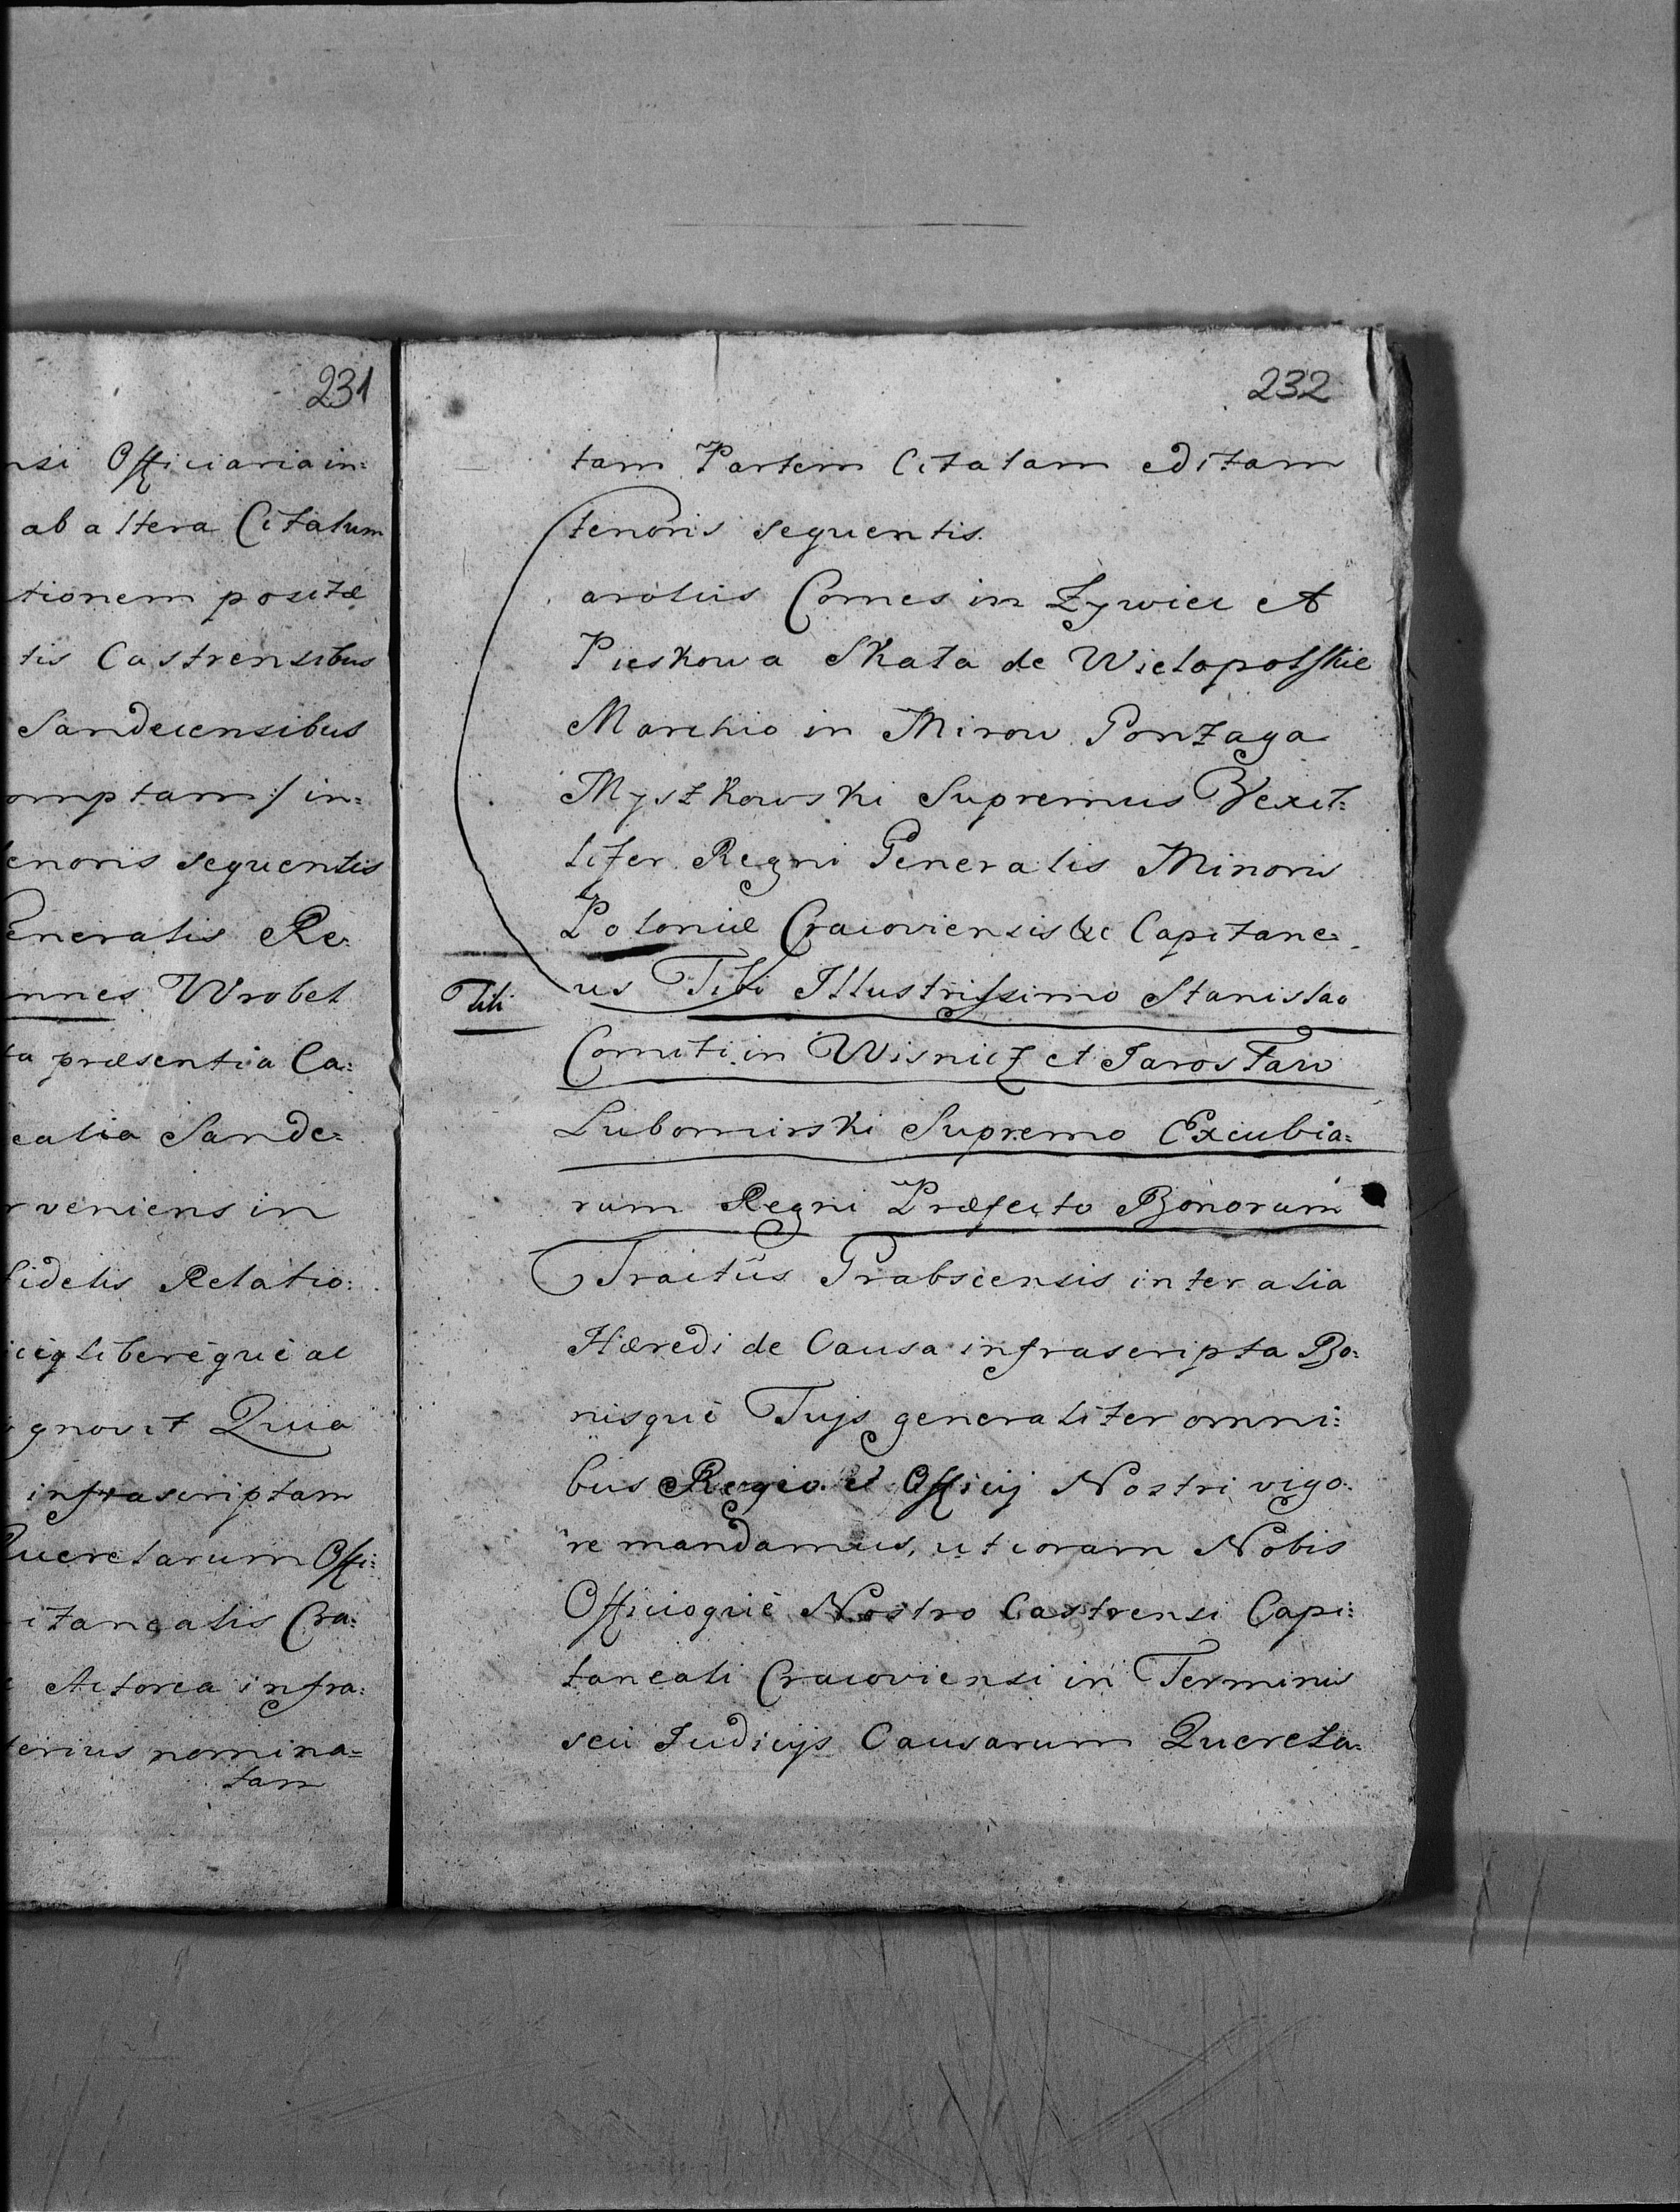 231
nsi Officiaria in=
ab altera Citatum
tionem positæ
tis Castrensibus
Sandecensibus
omptam :/ in=
enoris sequentis
Generalis Re=
nnes Wrobel
ta præsentia Ca=
ealia Sande=
rveniens in
fidelis Relatio=
libereque ac
gnovit Quia
infrascriptam
Querelarum Offi=
itanealis Cra=
Actorea infra=
terius nomina=
tam
232
tam Partem Citatam editam
tenoris sequentis.
arolus Comes in Zywiec et
Pieskowa Skała de Wielopolskie
Marchio in Mirow Gonzaga
Myszkowski Supremus Vexil=
lifer Regni Generalis Minoris
Poloniæ Cracoviensis &c Capitane=
Tibi
us Tibi Illustrissimo Stanislao
Comiti in Wisnicz et Jarosław
Lubomirski Supremo Excubia=
rum Regni Præfecto Bonorum
Tractûs Grabscensis inter alia
Hæredi de Causa infrascripta Bo=
nisquè Tujs generaliter omni=
bus Regio et Officij Nostri vigo=
re mandamus, ut coram Nobis
Officioquè Nostro Castrensi Capi=
taneali Cracoviensi in Terminis
seu Judicijs Causarum Querela=